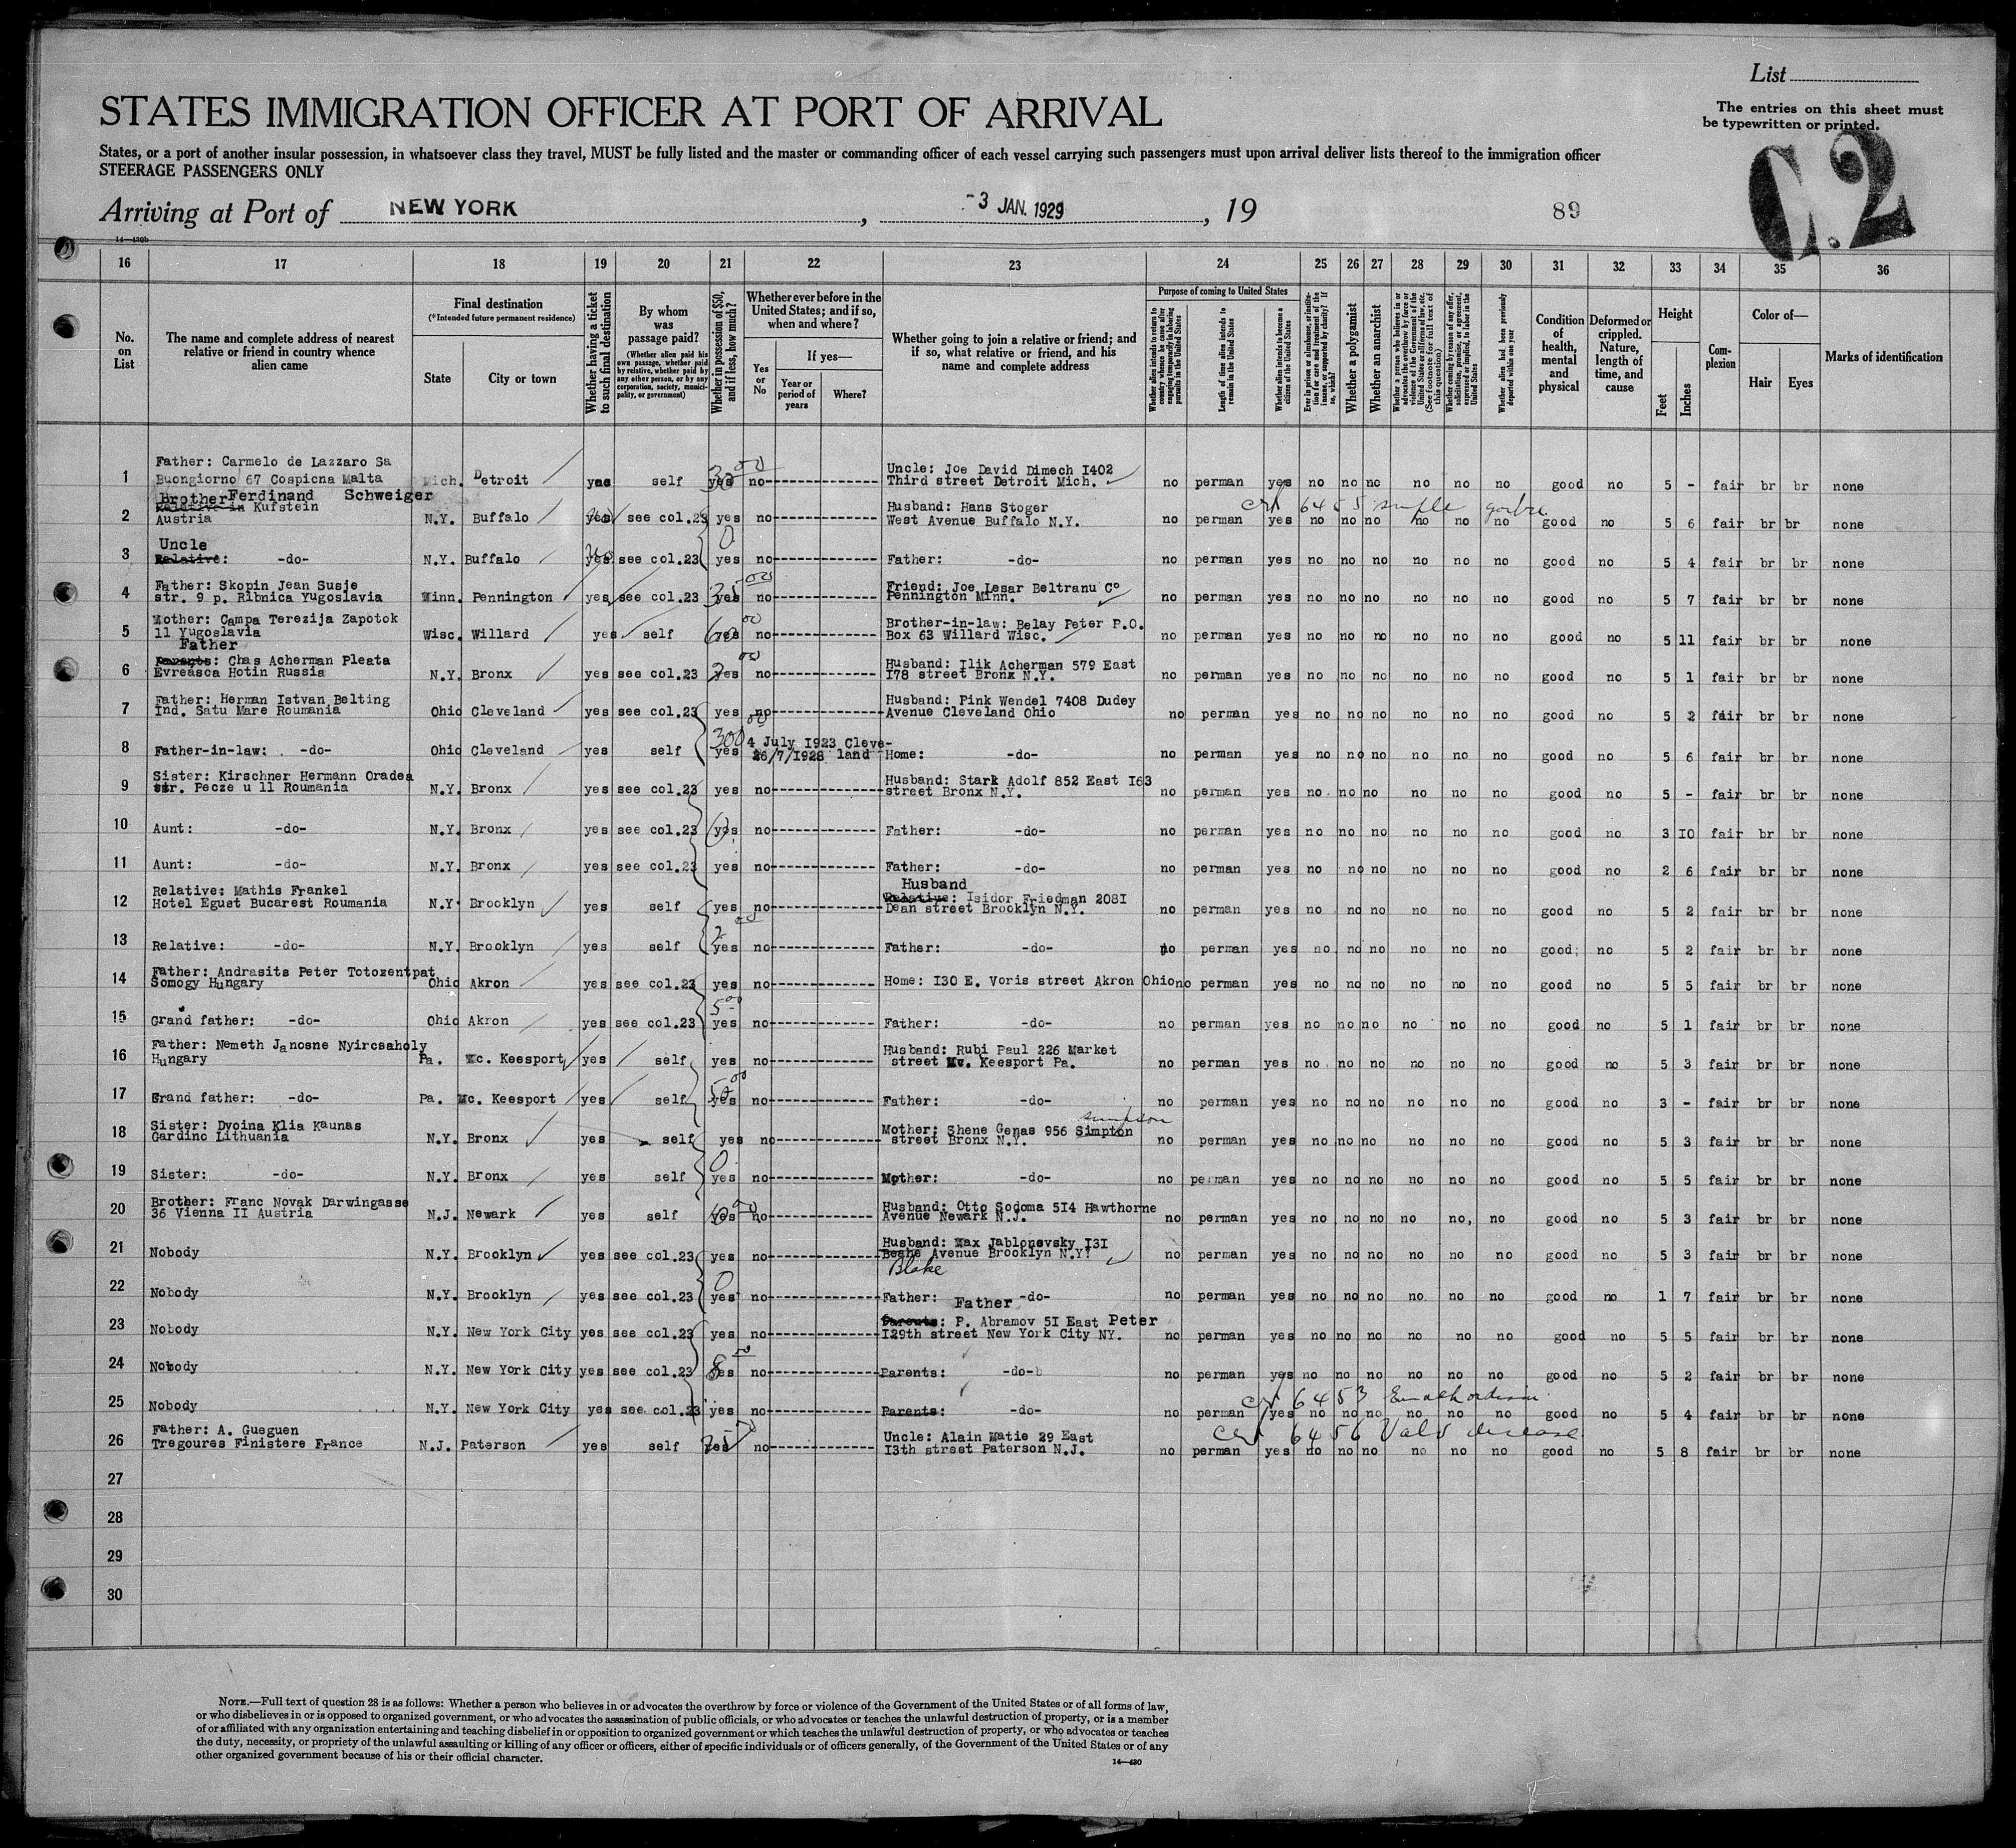 List
The entries on this sheet must
be typewritten or printed.
C.2
STATES IMMIGRATION OFFICER AT PORT OF ARRIVAL
States, or a port of another insular possession, in whatsoever class they travel, MUST be fully listed and the master or commanding officer of each vessel carrying such passengers must upon arrival deliver lists thereof to the immigration officer
STEERAGE PASSENGERS ONLY
Arriving at Port of NEW YORK, -3 JAN. 1929, 19 89
14—430b
16 17 18 19 20 21 22 23 24 25 26 27 28 29 30 31 32 33 34 35 36
No. on List
The name and complete address of nearest relative or friend in country whence alien came
Final destination
(*Intended future permanent residence)
State
City or town
Whether having a ticket to such final destination
By whom was passage paid?
(Whether alien paid his own passage, whether paid by relative, whether paid by any other person, or by any corporation, society, municipality, or government)
Whether in possession of $50, and if less, how much?
Whether ever before in the United States; and if so, when and where?
Yes or No
If yes—
Year or period of years
Where?
Whether going to join a relative or friend; and if so, what relative or friend, and his name and complete address
Purpose of coming to United States
Whether alien intends to return to country whence he came after engaging temporarily in laboring pursuits in the United States
Length of time alien intends to remain in the United States
Whether alien intends to become a citizen of the United States
Ever in prison or almshouse, or institution for care and treatment of the insane, or supported by charity? If so, which?
Whether a polygamist
Whether an anarchist
Whether a person who believes in or advocates the overthrow by force or violence of the Government of the United States or all forms of law, etc. (See footnote for full text of this question)
Whether coming by reason of any offer, solicitation, promise, or agreement, expressed or implied, to labor in the United States
Whether alien had been previously deported within one year
Condition of health, mental and physical
Deformed or crippled. Nature, length of time, and cause
Height
Feet
Inches
Complexion
Color of—
Hair
Eyes
Marks of identification
1 Father: Carmelo de Lazzaro Sa Buongiorno 67 Cospicna Malta Mich. Detroit yes self yes 30 00 no Uncle: Joe David Dimech I402 Third street Detroit Mich. no perman yes no no no no no no good no 5 - fair br br none
2 Brother Ferdinand Schweiger Relative in Kufstein Austria N.Y. Buffalo yes see col.23 yes no Husband: Hans Stoger West Avenue Buffalo N.Y. no perman yes no no no no no no good no 5 6 fair br br none
6455
3 Uncle Relative: -do- N.Y. Buffalo yes see col.23 0 yes no Father: -do- no perman yes no no no no no no good no 5 4 fair br br none
4 Father: Skopin Jean Susje str. 9 p. Ribnica Yugoslavia Minn. Pennington yes see col.23 yes 35 00 no Friend: Joe Lesar Beltranu Co Pennington Minn. no perman yes no no no no no no good no 5 7 fair br br none
5 Mother: Campa Terezija Zapotok 11 Yugoslavia Wisc. Willard yes self yes 00 no Brother-in-law: Belay Peter P.O. Box 63 Willard Wisc. no perman yes no no no no no no good no 5 11 fair br br none
6 Father Parents: Chas Acherman Pleata Evreasca Hotin Russia N.Y. Bronx yes see col.23 yes 00 no Husband: Ilik Acherman 579 East I78 street Bronx N.Y. no perman yes no no no no no no good no 5 1 fair br br none
7 Father: Herman Istvan Belting Ind. Satu Mare Roumania Ohio Cleveland yes see col.23 yes no Husband: Pink Wendel 7408 Dudey Avenue Cleveland Ohio no perman yes no no no no no no good no 5 2 fair br br none
8 Father-in-law: -do- Ohio Cleveland yes self 300 00 yes 4 July I923 Cleve- 26/7/I928 land Home: -do- no perman yes no no no no no no good no 5 6 fair br br none
9 Sister: Kirschner Hermann Oradea str. Pecze u 11 Roumania N.Y. Bronx yes see col.23 yes no Husband: Stark Adolf 852 East I63 street Bronx N.Y. no perman yes no no no no no no good no 5 - fair br br none
10 Aunt: -do- N.Y. Bronx yes see col.23 yes no Father: -do- no perman yes no no no no no no good no 3 IO fair br br none
11 Aunt: -do- N.Y. Bronx yes see col.23 yes no Father: -do- no perman yes no no no no no no good no 2 6 fair br br none
12 Relative: Mathis Frankel Hotel Egust Bucarest Roumania N.Y. Brooklyn yes self yes no Husband Relative: Isidor Friedman 208I Dean street Brooklyn N.Y. no perman yes no no no no no no good no 5 2 fair br br none
13 Relative: -do- N.Y. Brooklyn yes self yes no Father: -do- no perman yes no no no no no no good no 5 2 fair br br none
14 Father: Andrasits Peter Totozentpat Somogy Hungary Ohio Akron yes see col.23 yes no Home: I30 E. Voris street Akron Ohio no perman yes no no no no no no good no 5 5 fair br br none
15 Grand father: -do- Ohio Akron yes see col.23 5 00 yes no Father: -do- no perman yes no no no no no no good no 5 1 fair br br none
16 Father: Nemeth Janosne Nyircsaholy Hungary Pa. Mc. Keesport yes self yes no Husband: Rubi Paul 226 Market street Mc. Keesport Pa. no perman yes no no no no no no good no 5 3 fair br br none
17 Grand father: -do- Pa. Mc. Keesport yes self 50 00 yes no Father: -do- no perman yes no no no no no no good no 3 - fair br br none
18 Sister: Dvoina Klia Kaunas Gardino Lithuania N.Y. Bronx yes self yes no Mother: Shene Genas 956 Simpton simpson street Bronx N.Y. no perman yes no no no no no no good no 5 3 fair br br none
19 Sister: -do- N.Y. Bronx yes self 0 yes no Mother: -do- no perman yes no no no no no no good no 5 5 fair br br none
20 Brother: Franc Novak Darwingasse 36 Vienna II Austria N.J. Newark yes self yes 00 no Husband: Otto Sodoma 5I4 Hawthorne Avenue Newark N.J. no perman yes no no no no no, no good no 5 3 fair br br none
21 Nobody N.Y. Brooklyn yes see col.23 yes no Husband: Max Jablonevsky I3I Avenue Brooklyn N.Y. Blake no perman yes no no no no no no good no 5 3 fair br br none
22 Nobody N.Y. Brooklyn yes see col.23 0 yes no Father: -do- no perman yes no no no no no no good no 1 7 fair br br none
23 Nobody N.Y. New York City yes see col.23 yes no Father Parents: P. Abramov 5I East Peter I29th street New York City NY. no perman yes no no no no no no good no 5 5 fair br br none
24 Nobody N.Y. New York City yes see col.23 8 00 yes no Parents: -do- no perman yes no no no no no no good no 5 2 fair br br none
25 Nobody N.Y. New York City yes see col.23 yes no Parents: -do- no perman yes no no no no no no good no 5 4 fair br br none
6453
26 Father: A. Gueguen Tregoures Finistere France N.J. Paterson yes self yes no Uncle: Alain Matie 29 East I3th street Paterson N.J. no perman yes no no no no no no good no 5 8 fair br br none
6456 Valv disease
27
28
29
30
NOTE.—Full text of question 28 is as follows: Whether a person who believes in or advocates the overthrow by force or violence of the Government of the United States or of all forms of law,
or who disbelieves in or is opposed to organized government, or who advocates the assassination of public officials, or who advocates or teaches the unlawful destruction of property, or is a member
of or affiliated with any organization entertaining and teaching disbelief in or opposition to organized government or which teaches the unlawful destruction of property, or who advocates or teaches
the duty, necessity, or propriety of the unlawful assaulting or killing of any officer or officers, either of specific individuals or of officers generally, of the Government of the United States or of any
other organized government because of his or their official character.
14—430